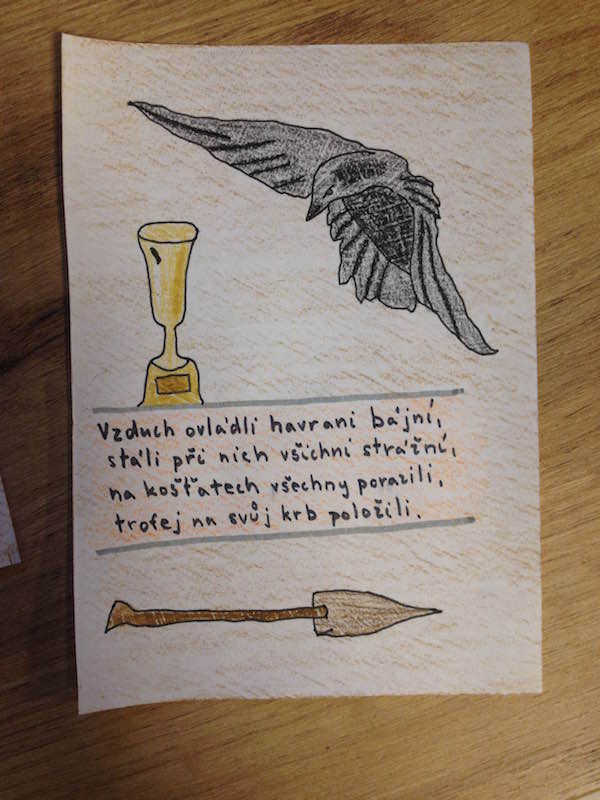 Vzduch ovládli havrani bájní,
stáli při nich všichni strážní,
na košťatech všechny porazili,
trofej na svůj krb položili.